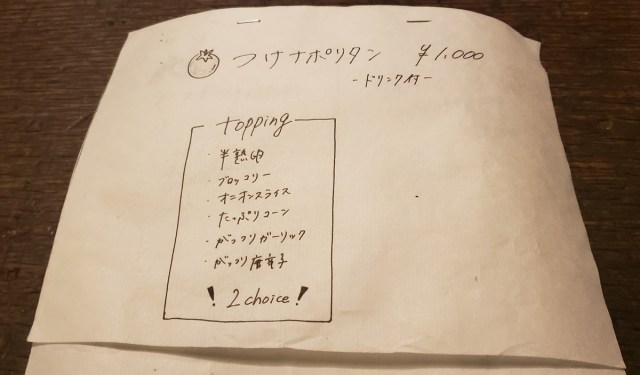 つけナポリタン ¥1,000
-ドリンク付-
topping
・半熟卵
・ブロッコリー
・オニオンスライス
・たっぷりコーン
・がっつりガーリック
・がっつり唐辛子
! 2 choice!